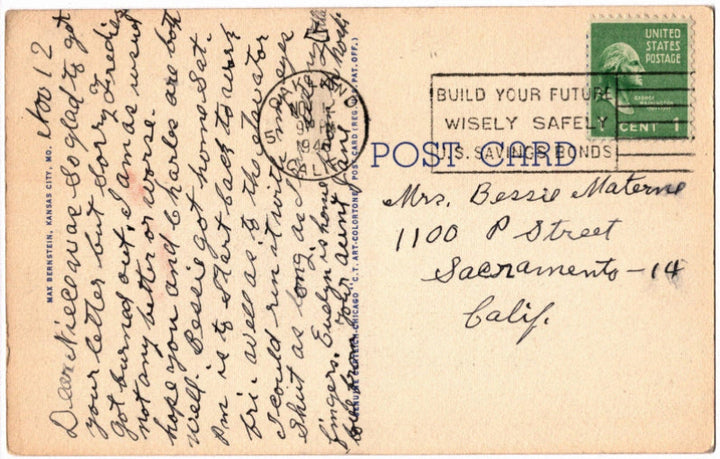 Nov 12
Dear Niece was so glad to get
your letter but sorry Freddie
got burned out. I am as usual
not any better or worse.
hope you and Charles are both
well. Bessie got home Sat.
P.m is to start back to work
Fri. as well as is the elevator
I could run it with my eyes
Shut as long as I
fingers. Evelyn is home
love from Your aunt Jane
MAX BERNSTEIN, KANSAS CITY, MO.
GENUINE CURTEICH-CHICAGO "C.T. ART-COLORTONE" POST CARD (REG. U.S. PAT. OFF.)
OAKLAND
NOV
CALIF
BUILD YOUR FUTURE
WISELY SAFELY
U.S. SAVINGS BONDS
UNITED
STATES
POSTAGE
GEORGE WASHINGTON
1 CENT 1
POST CARD
Mrs. Bessie Materne
1100 P Street
Sacramento-14
Calif.